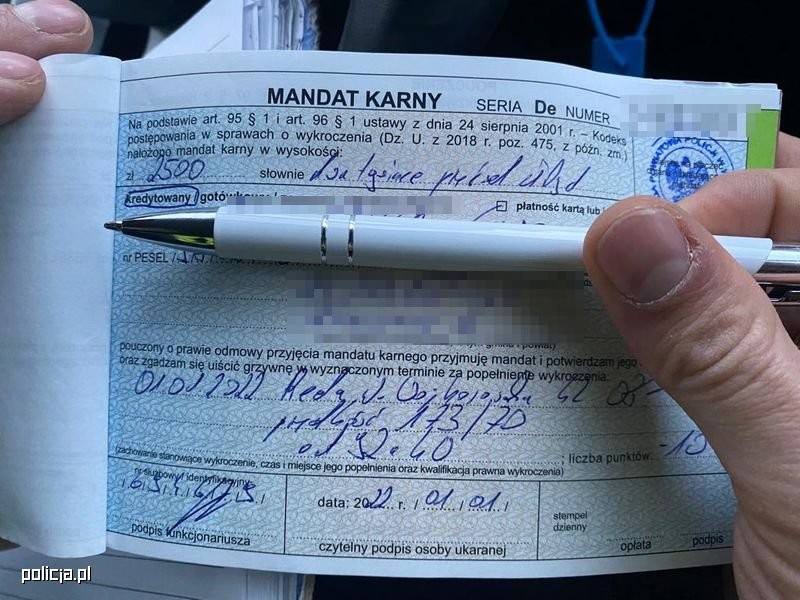 MANDAT KARNY SERIA De NUMER
Na podstawie art. 95 § 1 i art. 96 § 1 ustawy z dnia 24 sierpnia 2001 r. – Kodeks
postępowania w sprawach o wykroczenia (Dz. U. z 2018 r. poz. 475, z późn. zm.)
nałożono mandat karny w wysokości:
zł 2500 słownie dwa tysiące pięćset
kredytowany / płatność kartą lub
nr PESEL /
pouczony o prawie odmowy przyjęcia mandatu karnego przyjmuję mandat i potwierdzam jego
oraz zgadzam się uiścić grzywnę w wyznaczonym terminie za popełnienie wykroczenia:
01.01.2022 Reda ul.
prędkość 173/70
; liczba punktów: -10
(zachowanie stanowiące wykroczenie, czas i miejsce jego popełnienia oraz kwalifikacja prawna wykroczenia)
nr służbowy / identyfikacyjny
data: 2022 r. / 01 / 01 /
stempel
dzienny
podpis funkcjonariusza
czytelny podpis osoby ukaranej
opłata podpis
policja.pl